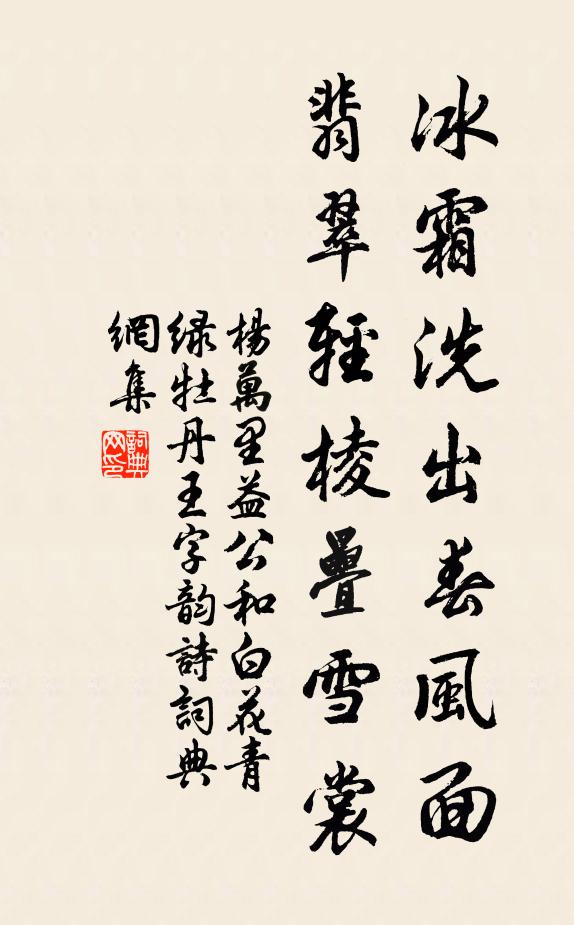 冰霜洗出春風面
翡翠輕棱疊雪裳
楊萬里益公和白花青
緑牡丹王字韵詩詞典
網集
詞典网印